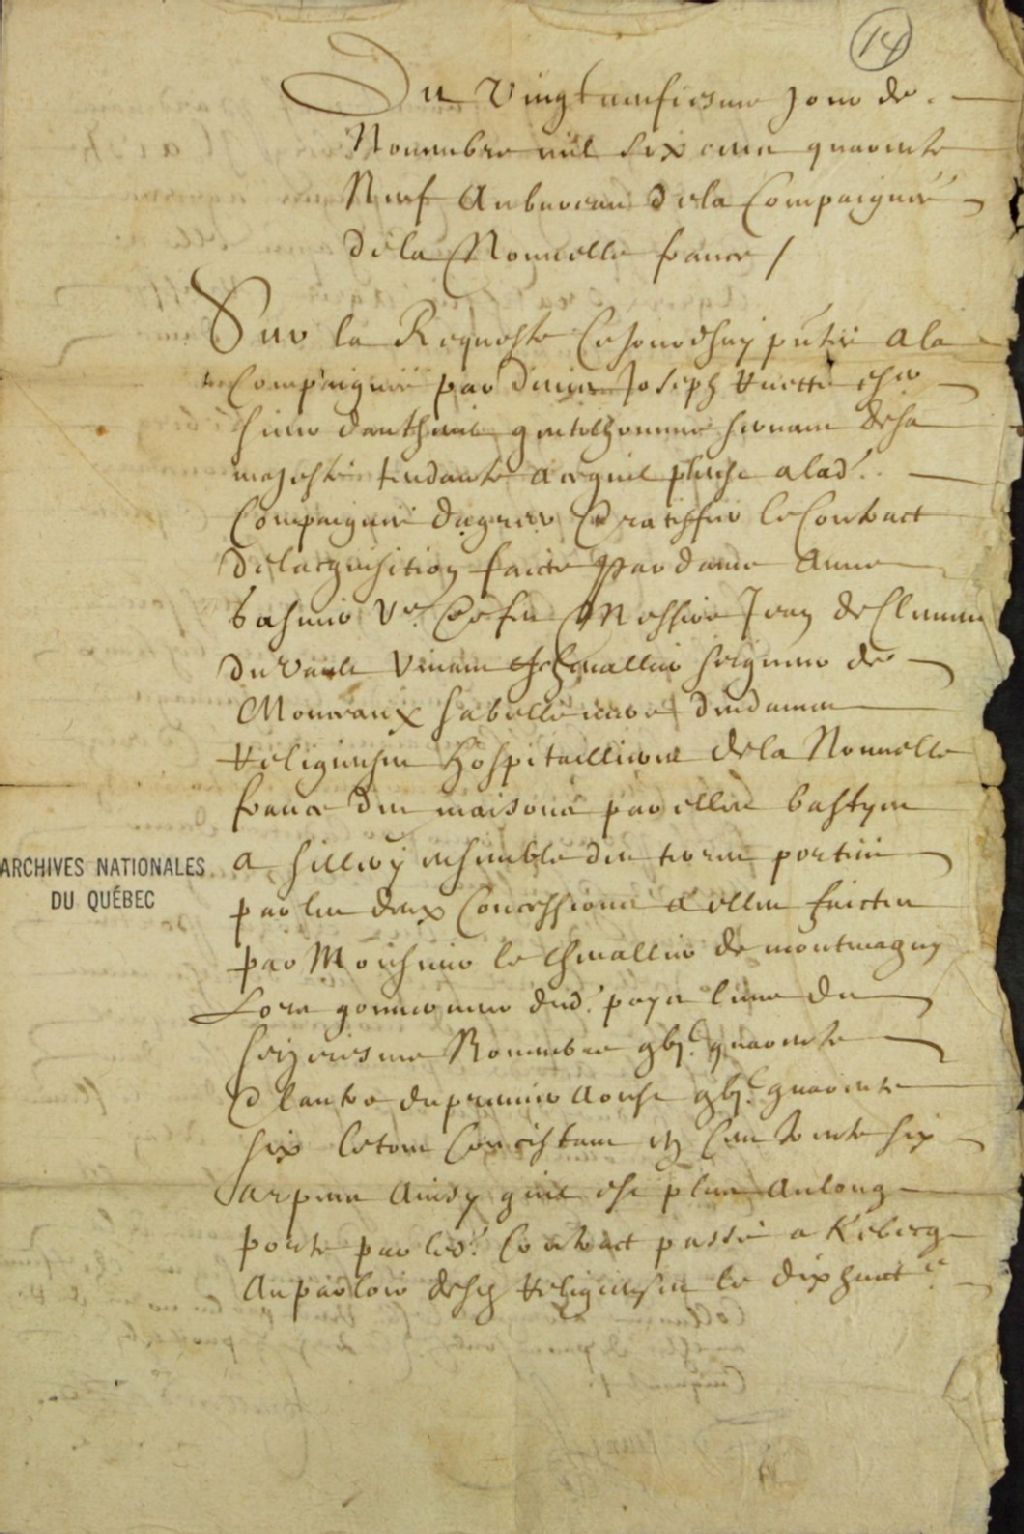 14
Du Vingt neufiesme Jour de
Novembre mil six cens quarente
Neuf Au bureau de la Compaignie
de la Nouvelle france /
Sur la Requeste Ce Jourdhuy pntée a la
Compaignie par Joseph Ruette
sieur dautheuil gentilhomme servant de sa
majesté tendante a ce quil pleust a lad.
Compaignie dagreer Et ratiffier le Contract
de lacquisition faicte Par dame Anne
Gasnier Ve. de feu Messire Jean de Clement
du Vault Vivant Chevallier seigneur de
Monceaux des dames
Religieuses Hospitallieres de la Nouvelle
france des maisons par elles basties
a Sillery ensemble des terres portées
par les deux Concessions a elles faictes
par Monsieur le Chevallier de montmagny
Lors gouverneur dud. pays lune du
seiziesme Novembre gbjc quarente
Et lautre du premier Aoust gbjc quarente
six le tout Consistant en Cent trente six
arpens Ainsy quil est plus Aulong
porté par led. Contract passé a Kebecq
Au parloir desd Religieuses le dix huite
ARCHIVES NATIONALES
DU QUÉBEC